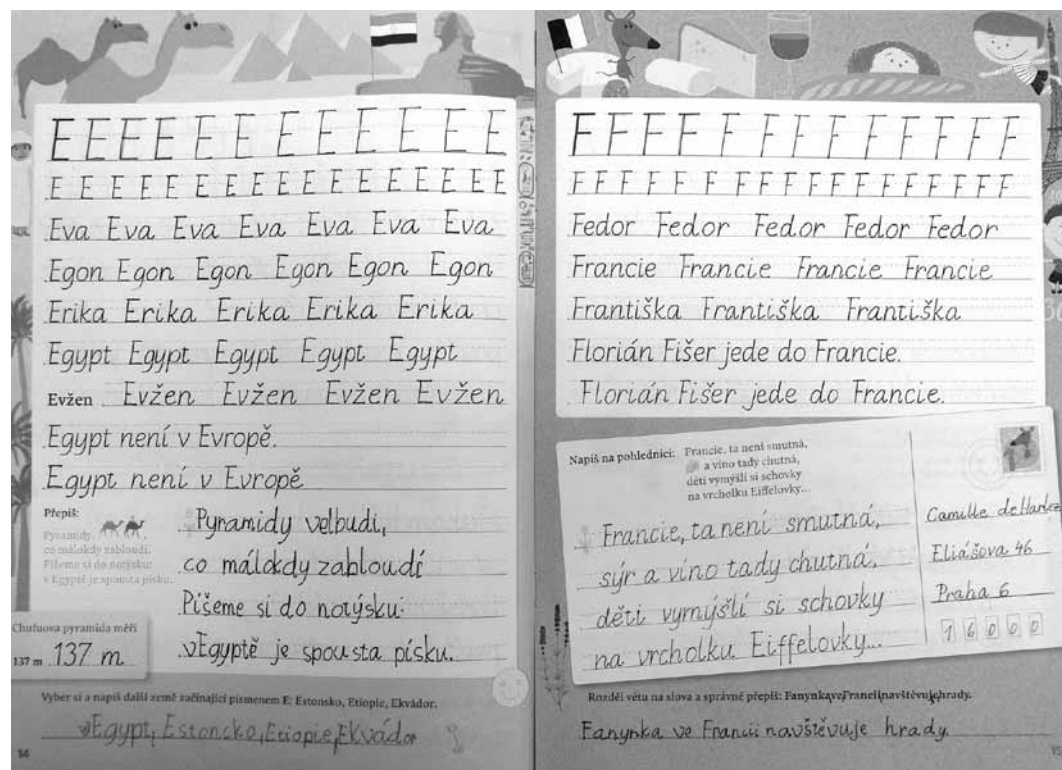 E E E E E E E E E E E E
E E E E E E E E E E E E E E E E E
Eva Eva Eva Eva Eva Eva Eva
Egon Egon Egon Egon Egon Egon
Erika Erika Erika Erika Erika
Egypt Egypt Egypt Egypt Egypt
Evžen Evžen Evžen Evžen Evžen
Egypt není v Evropě.
Egypt není v Evropě
Přepiš:
Pyramidy,
co málokdy zabloudí.
Píšeme si do notýsku:
v Egyptě je spousta písku.
Pyramidy velbudi,
co málokdy zabloudí
Píšeme si do notýsku:
vEgyptě je spousta písku.
Chufuova pyramida měří
137 m 137 m
Vyber si a napiš další země začínající písmenem E: Estonsko, Etiopie, Ekvádor.
Egypt, Estoncko, Etiopie, Ekvádor
14
F F F F F F F F F F F F F
F F F F F F F F F F F F F F F F
Fedor Fedor Fedor Fedor Fedor
Francie Francie Francie Francie
Františka Františka Františka
Florián Fišer jede do Francie.
Florián Fišer jede do Francie.
Napiš na pohlednici: Francie, ta není smutná,
a víno tady chutná,
děti vymýšlí si schovky
na vrcholku Eiffelovky...
Francie, ta není smutná,
sýr a víno tady chutná,
děti vymýšlí si schovky
na vrcholku Eiffelovky...
Camille de
Eliášova 46
Praha 6
1 6 0 0 0
Rozděl větu na slova a správně přepiš: FanynkaveFranciinavštěvujehrady.
Fanynka ve Francii navštěvuje hrady.
15